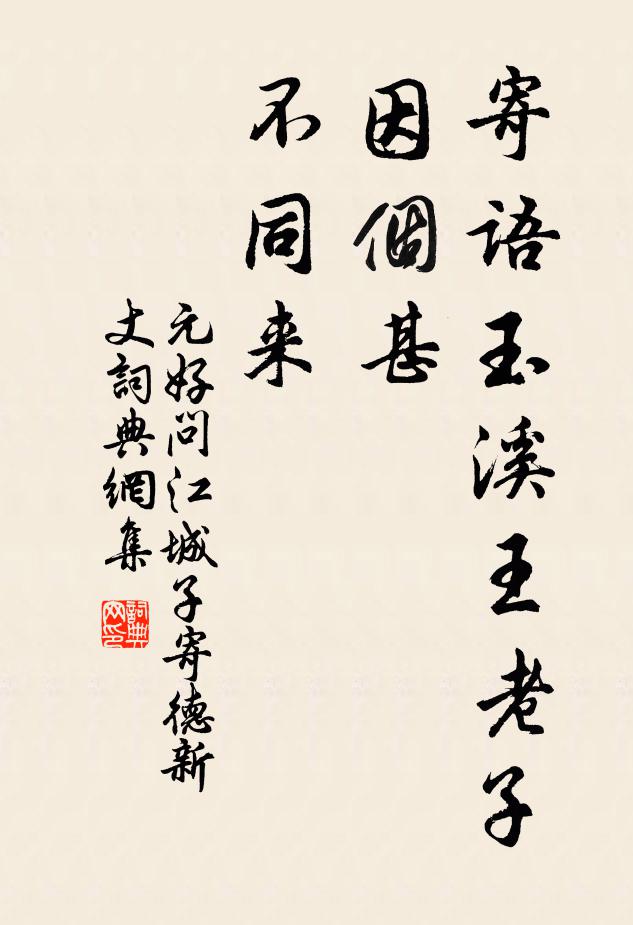 寄語玉溪王老子
因個甚
不同来
元好问江城子寄德新
丈詞典網集
詞典网印